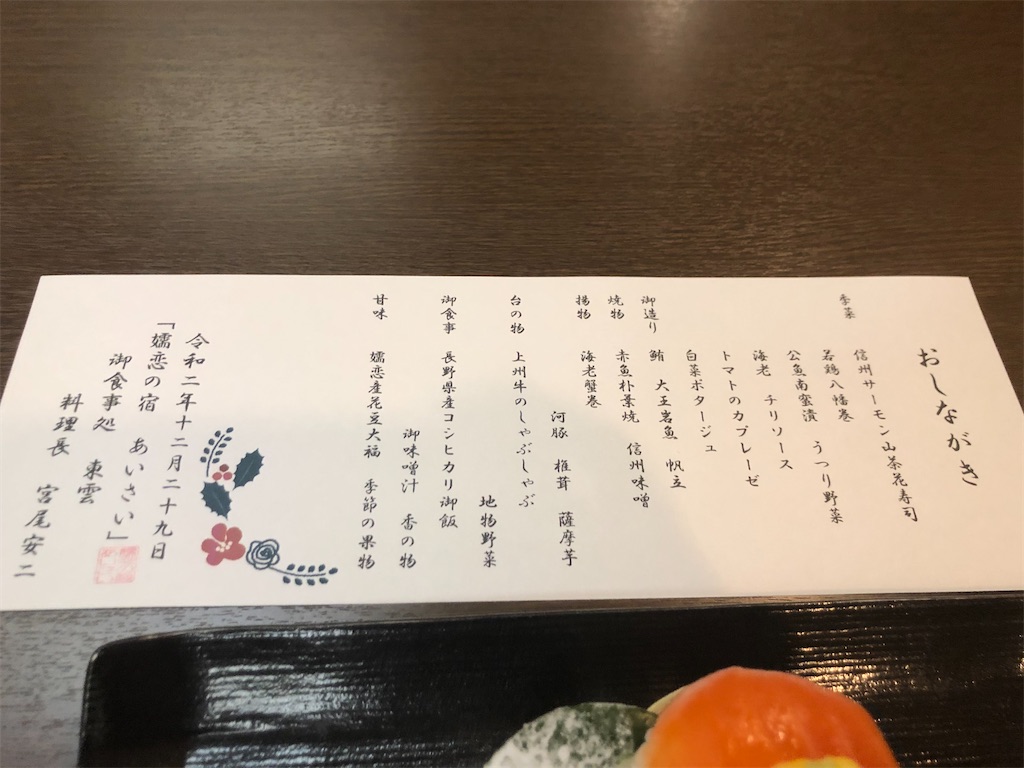 おしながき
季菜 信州サーモン山茶花寿司
若鶏八幡巻 うつり野菜
公魚南蛮漬
海老 チリソース
トマトのカプレーゼ
白菜ポタージュ
御造り 鮪 大王岩魚 帆立
焼物 赤魚朴葉焼 信州味噌
揚物 海老蟹巻
河豚 椎茸 薩摩芋
台の物 上州牛のしゃぶしゃぶ
地物野菜
御食事 長野県産コシヒカリ御飯
御味噌汁 香の物
甘味 嬬恋産花豆大福 季節の果物
令和二年十二月二十九日
「嬬恋の宿 あいさい」
御食事処 東雲
料理長 宮尾安二